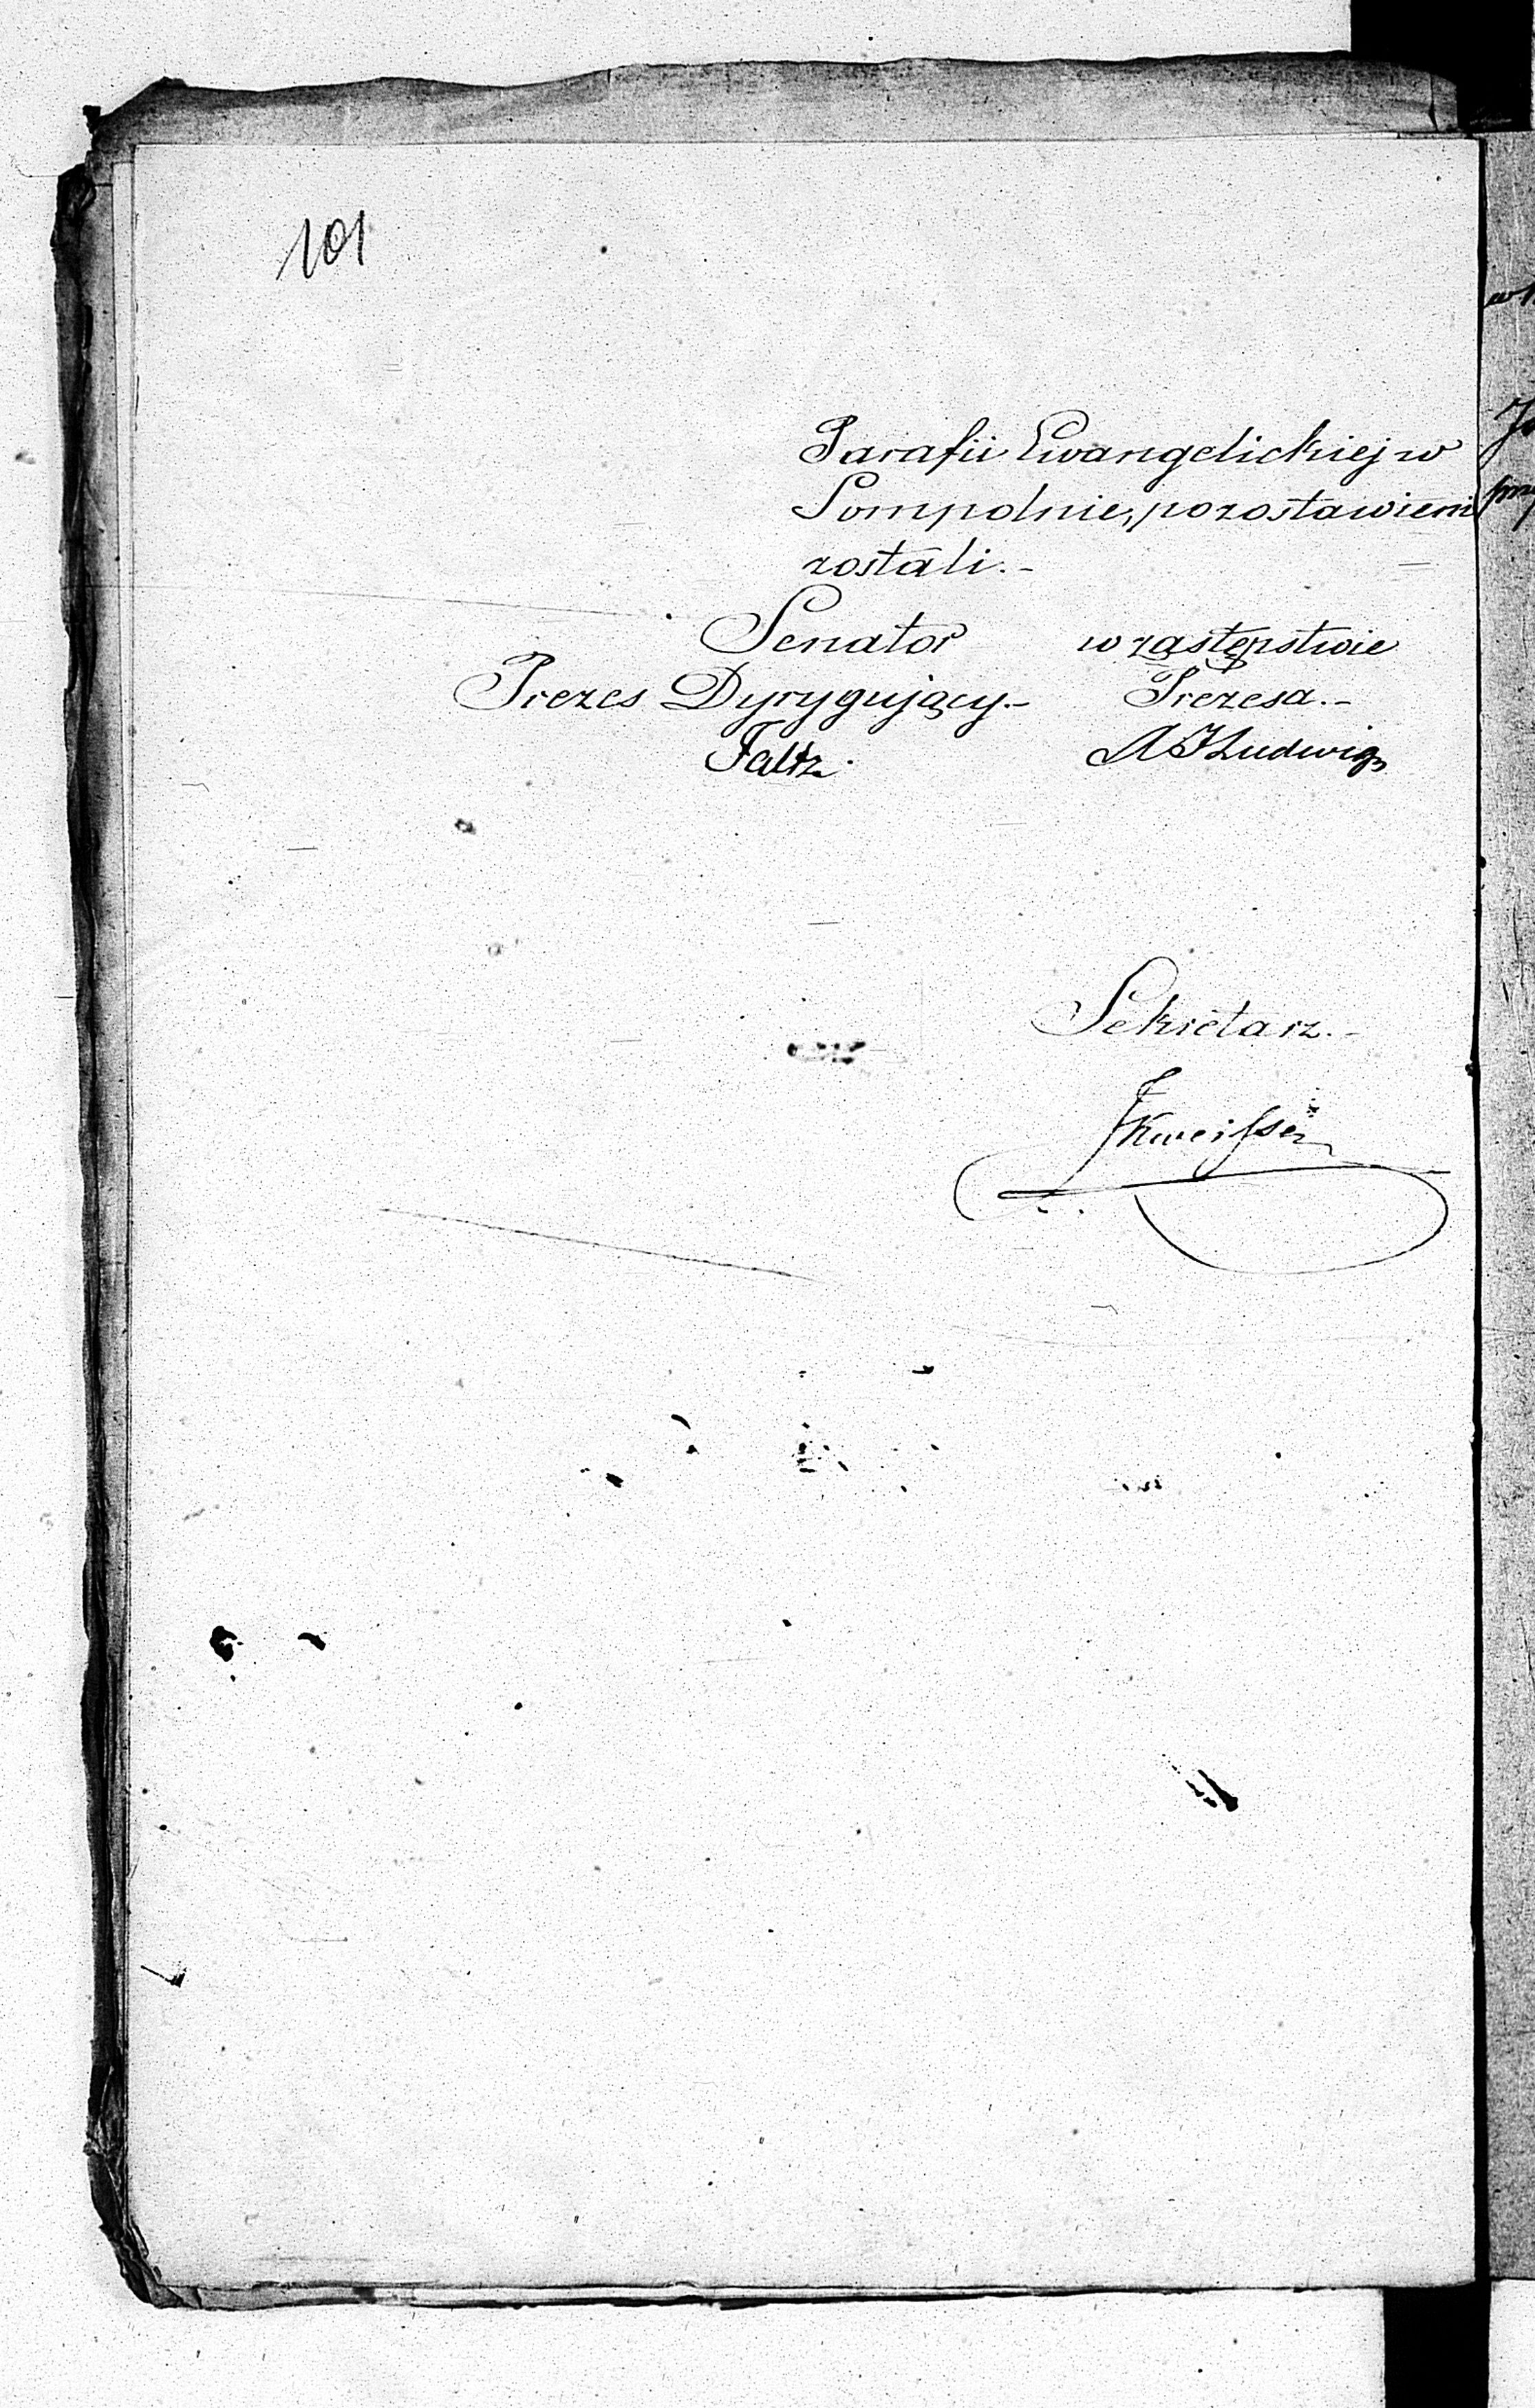 101
Parafii Ewangelickiej w
Sompolnie, pozostawieni
zostali.-
Senator w zastępstwie
Prezes Dyrygujący.- Prezesa.-
Faltz. A J Ludwig
Sekretarz.-